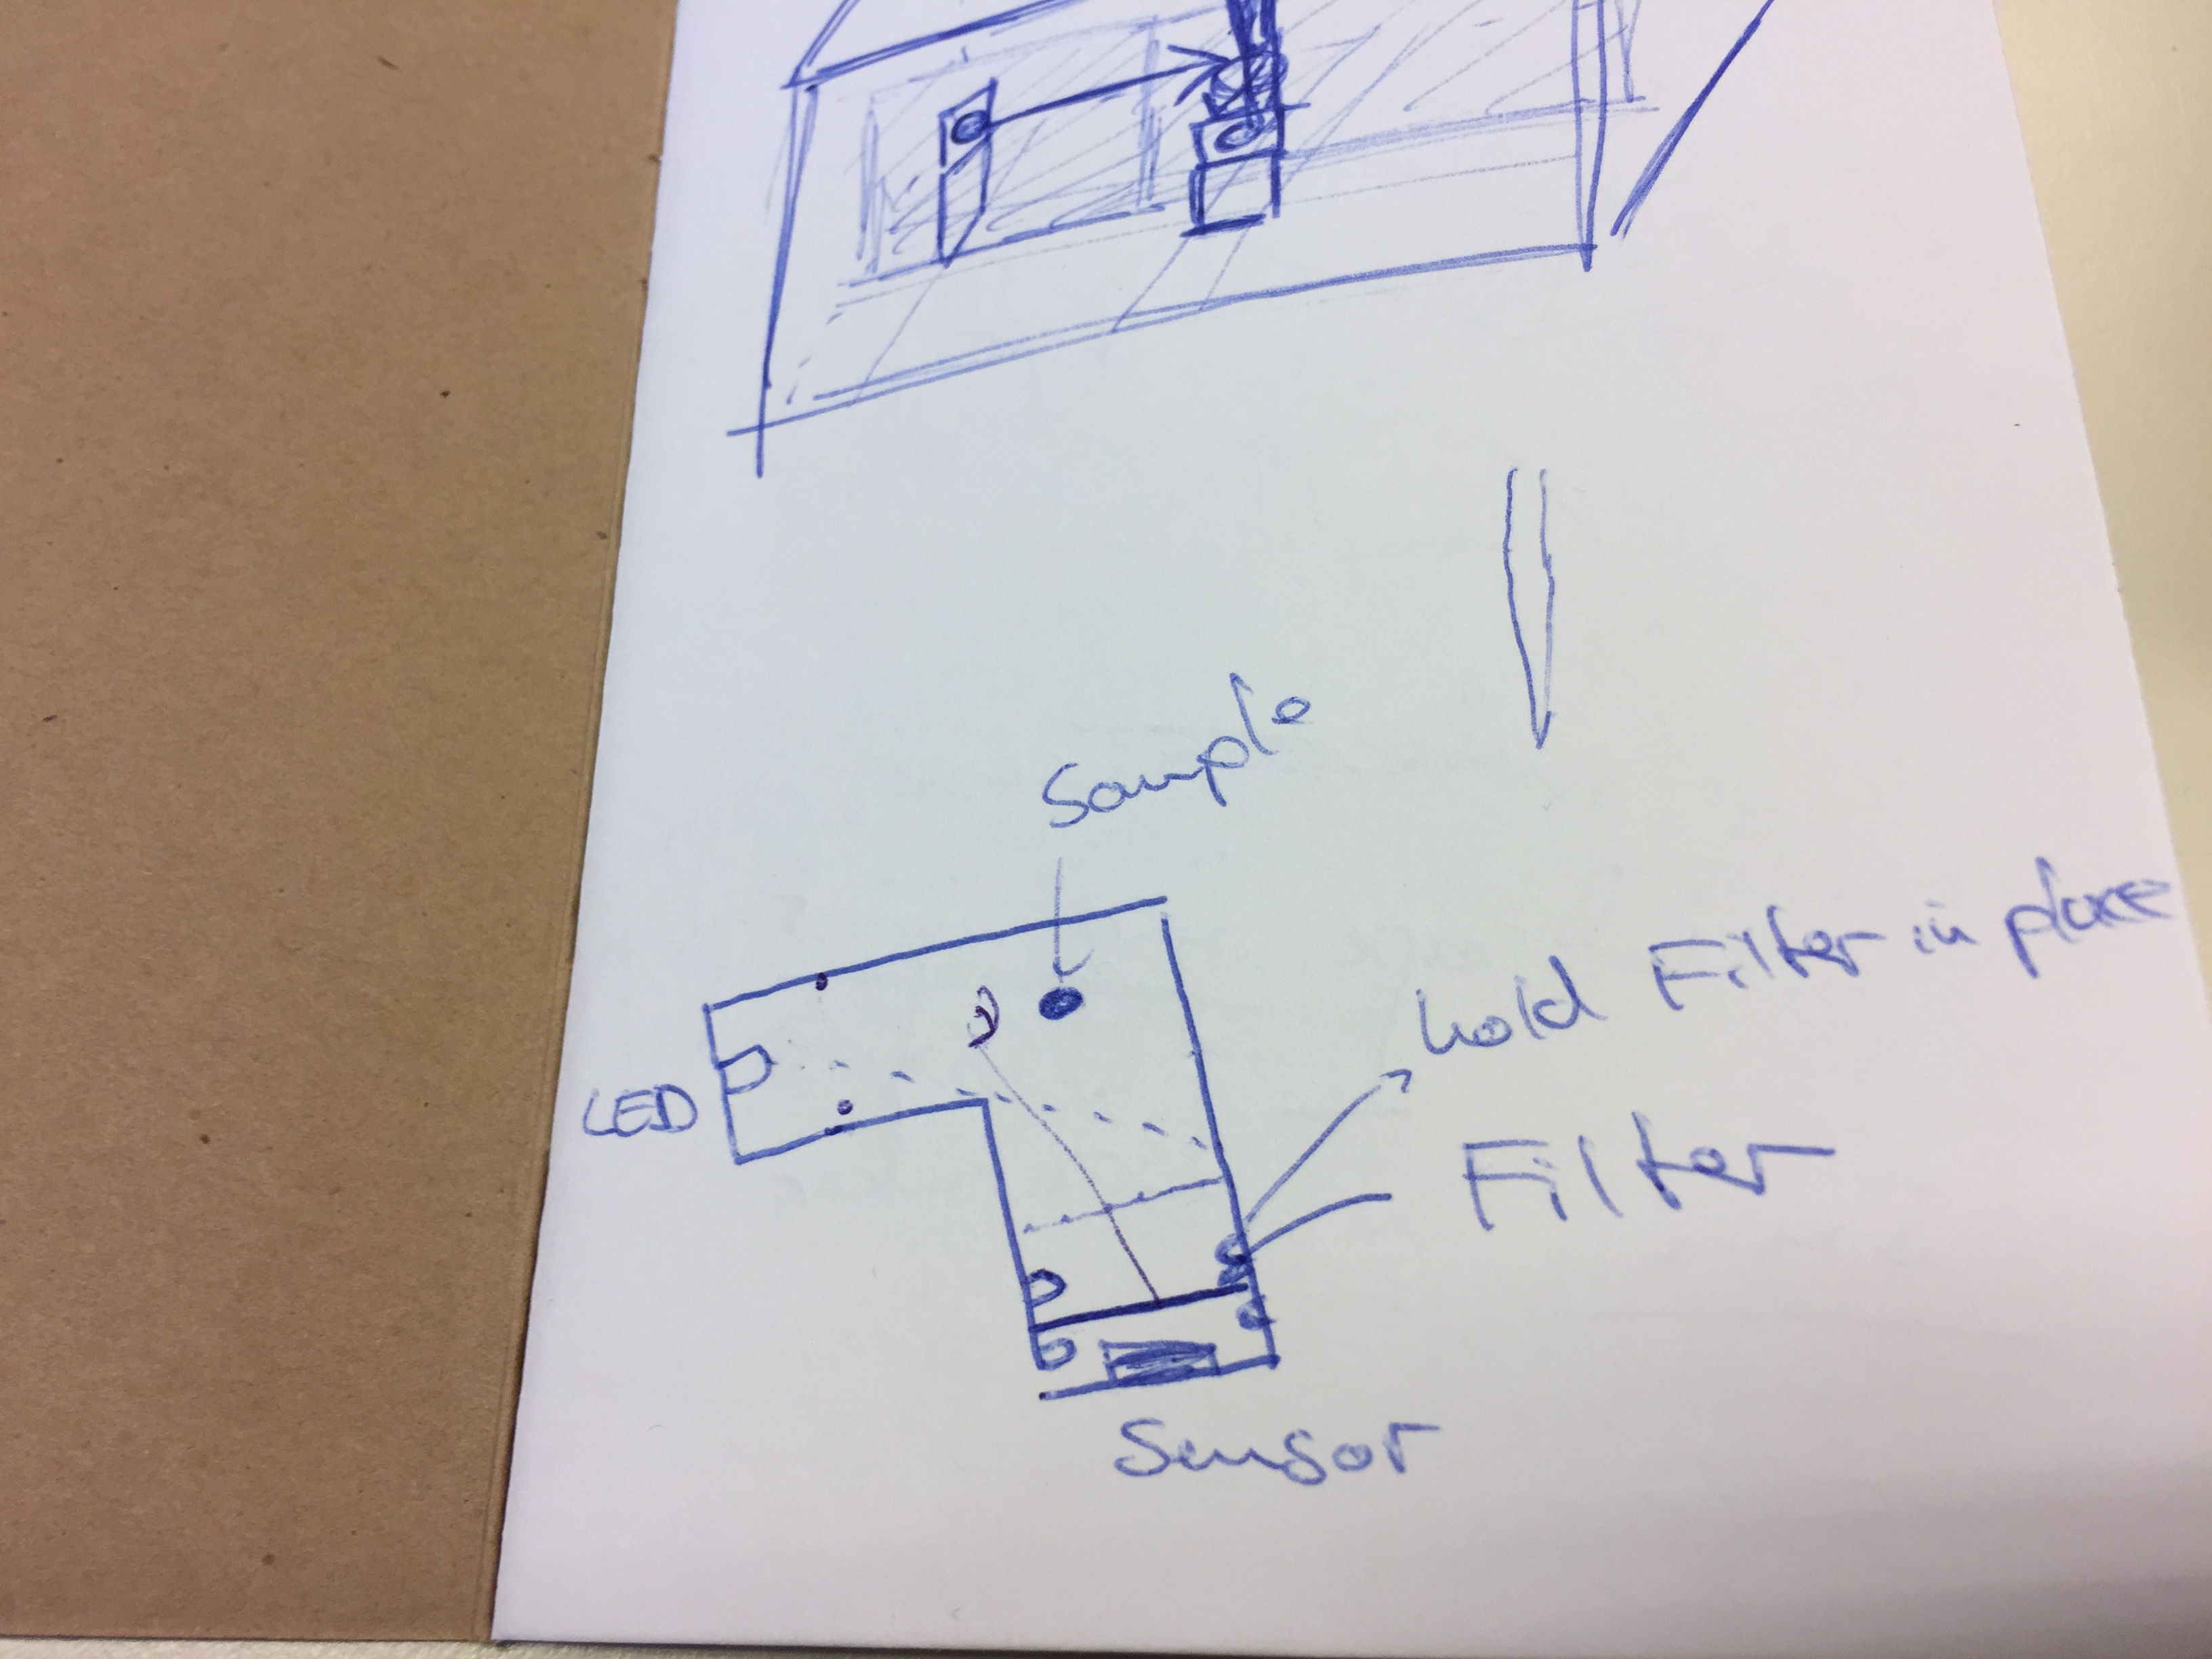 Sample
hold Filter in place
LED
Filter
Sensor